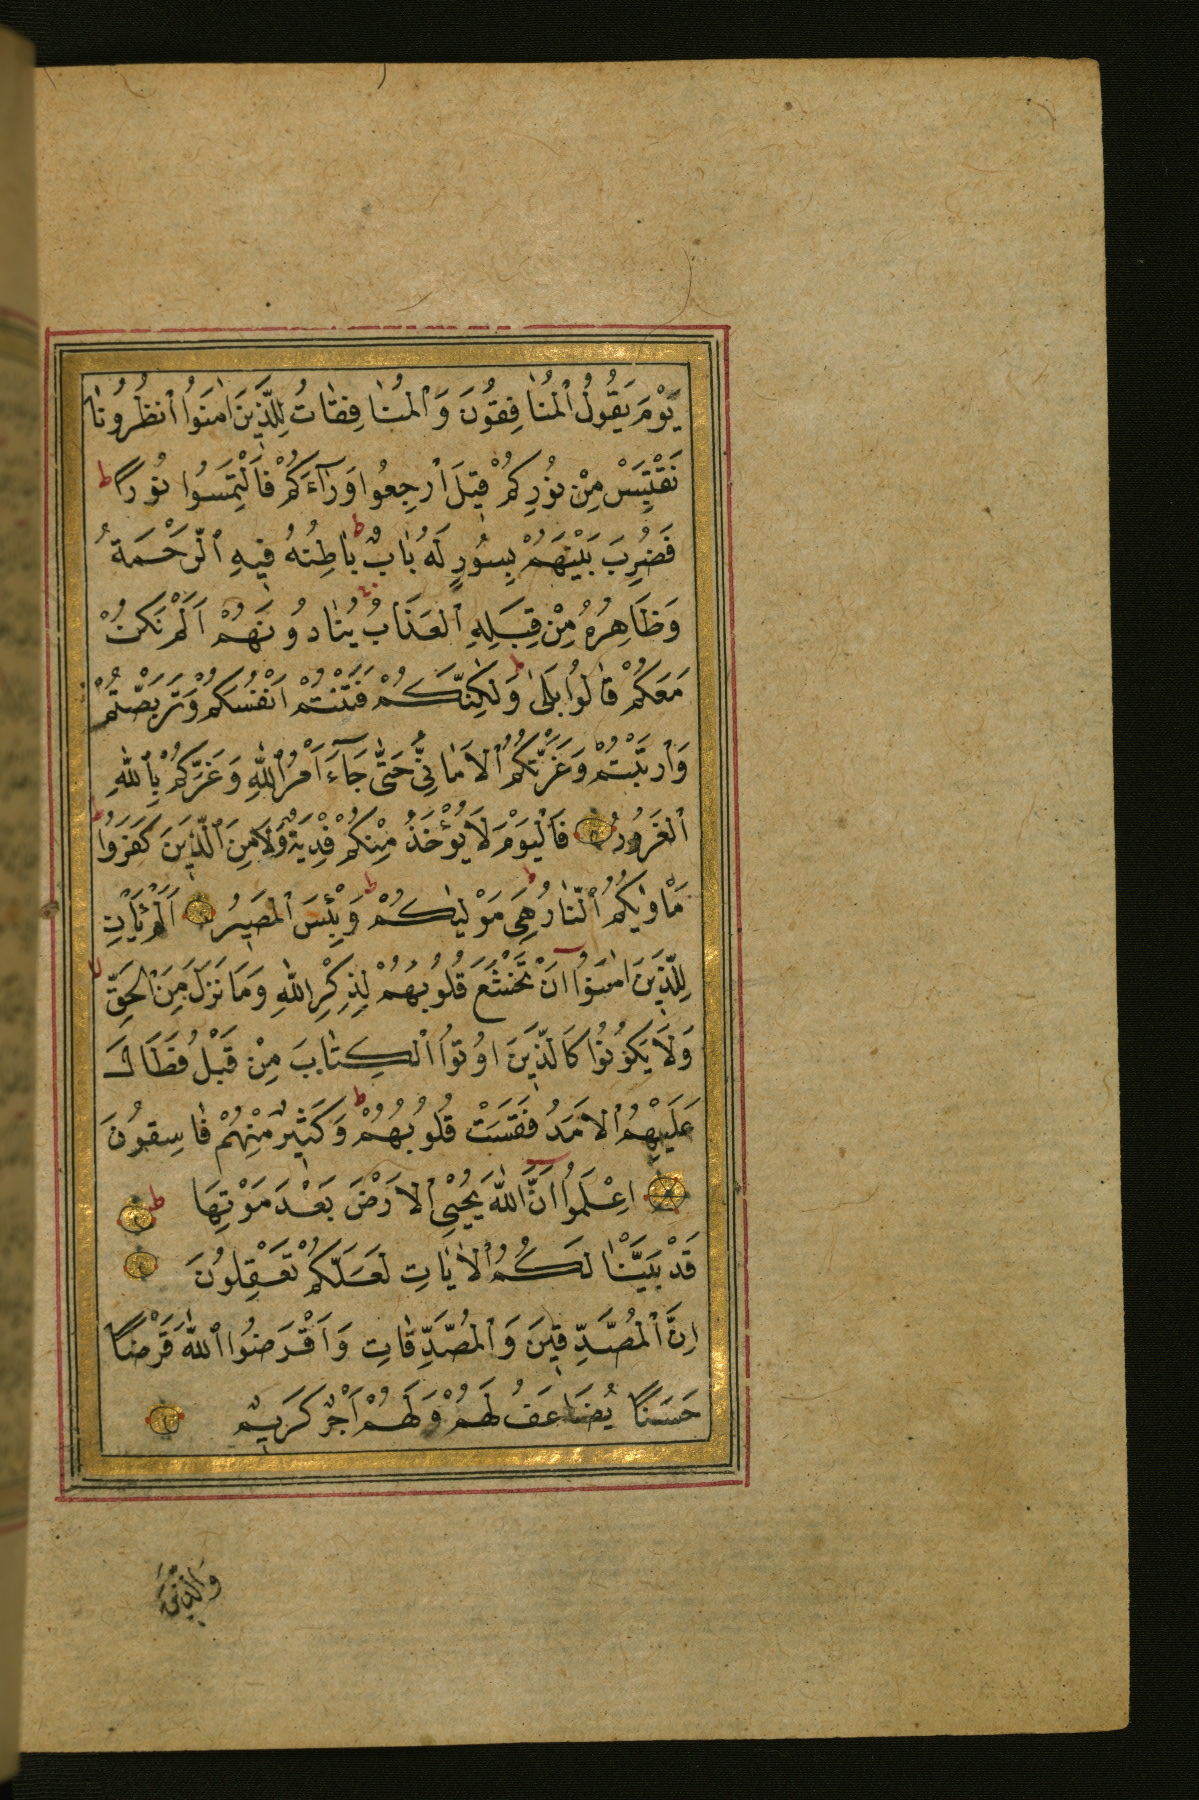 يَوْمَ يَقُولُ ٱلْمُنَافِقُونَ وَٱلْمُنَافِقَاتُ لِلَّذِينَ اٰمَنُوا ٱنْظُرُونَا
نَقْتَبِسْ مِنْ نُورِكُمْ قِيلَ ٱرْجِعُوا وَرَآءَكُمْ فَٱلْتَمِسُوا نُورًا ط
فَضُرِبَ بَيْنَهُمْ بِسُورٍ لَهُ بَابٌ ط بَاطِنُهُ فِيهِ ٱلرَّحْمَةُ
وَظَاهِرُهُ مِنْ قِبَلِهِ ٱلْعَذَابُ يُنَادُونَهُمْ اَلَمْ نَكُنْ
مَعَكُمْ قَالُوا بَلَىٰ وَلٰكِنَّكُمْ فَتَنْتُمْ اَنْفُسَكُمْ وَتَرَبَّصْتُمْ
وَٱرْتَبْتُمْ وَغَرَّتْكُمُ ٱلْاَمَانِيُّ حَتَّىٰ جَآءَ اَمْرُ ٱللّٰهِ وَغَرَّكُمْ بِٱللّٰهِ
ٱلْغَرُورُ فَٱلْيَوْمَ لَا يُؤْخَذُ مِنْكُمْ فِدْيَةٌ وَلَا مِنَ ٱلَّذِينَ كَفَرُوا ط
مَأْوٰيكُمُ ٱلنَّارُ ط هِيَ مَوْلٰيكُمْ ط وَبِئْسَ ٱلْمَصِيرُ اَلَمْ يَأْنِ
لِلَّذِينَ اٰمَنُوٓا اَنْ تَخْشَعَ قُلُوبُهُمْ لِذِكْرِ ٱللّٰهِ وَمَا نَزَلَ مِنَ ٱلْحَقِّ لا
وَلَا يَكُونُوا كَٱلَّذِينَ اُوتُوا ٱلْكِتَابَ مِنْ قَبْلُ فَطَالَ
عَلَيْهِمُ ٱلْاَمَدُ فَقَسَتْ قُلُوبُهُمْ ط وَكَثِيرٌ مِنْهُمْ فَاسِقُونَ
اِعْلَمُوٓا اَنَّ ٱللّٰهَ يُحْيِي ٱلْاَرْضَ بَعْدَ مَوْتِهَا ط
قَدْ بَيَّنَّا لَكُمُ ٱلْاٰيَاتِ لَعَلَّكُمْ تَعْقِلُونَ
اِنَّ ٱلْمُصَّدِّقِينَ وَٱلْمُصَّدِّقَاتِ وَاَقْرَضُوا ٱللّٰهَ قَرْضًا
حَسَنًا يُضَاعَفُ لَهُمْ وَلَهُمْ اَجْرٌ كَرِيمٌ
وَٱلَّذِينَ